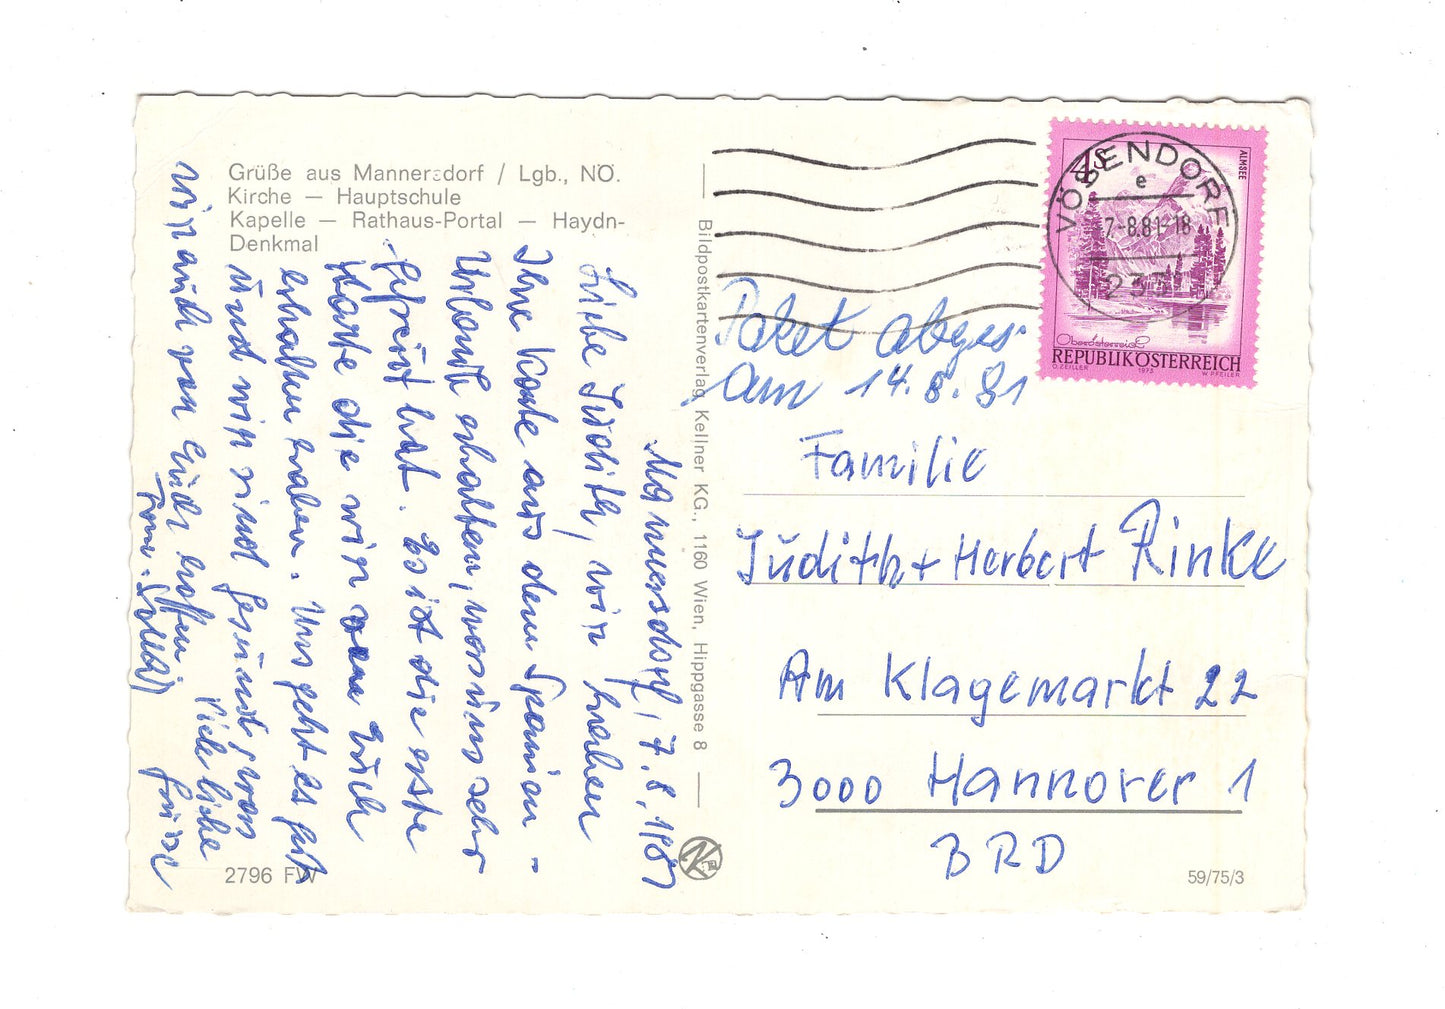 Grüße aus Mannersdorf / Lgb., NÖ.
Kirche — Hauptschule
Kapelle — Rathaus-Portal — Haydn-
Denkmal
Mannersdorf, 7.8.1981
Liebe Judith, wir haben
Ihre Karte aus dem Spanien-
Urlaub erhalten, was uns sehr
gefreut hat. Es ist die erste
Karte die wir von Euch
erhalten haben. Uns geht es gut
und wir sind gesund, was
wir auch von Euch hoffen.
Viele liebe
Grüße
Fam.
2796 FW
Bildpostkartenverlag Kellner KG., 1160 Wien, Hippgasse 8
K
VÖSENDORF
e
7-8.81-18
233
S
ALMSEE
Oberösterreich
REPUBLIK ÖSTERREICH
O. ZEILLER 1973 W. PFEILER
Paket abges
am 14.8.81
Familie
Judith + Herbert Rinke
Am Klagemarkt 22
3000 Hannover 1
BRD
59/75/3